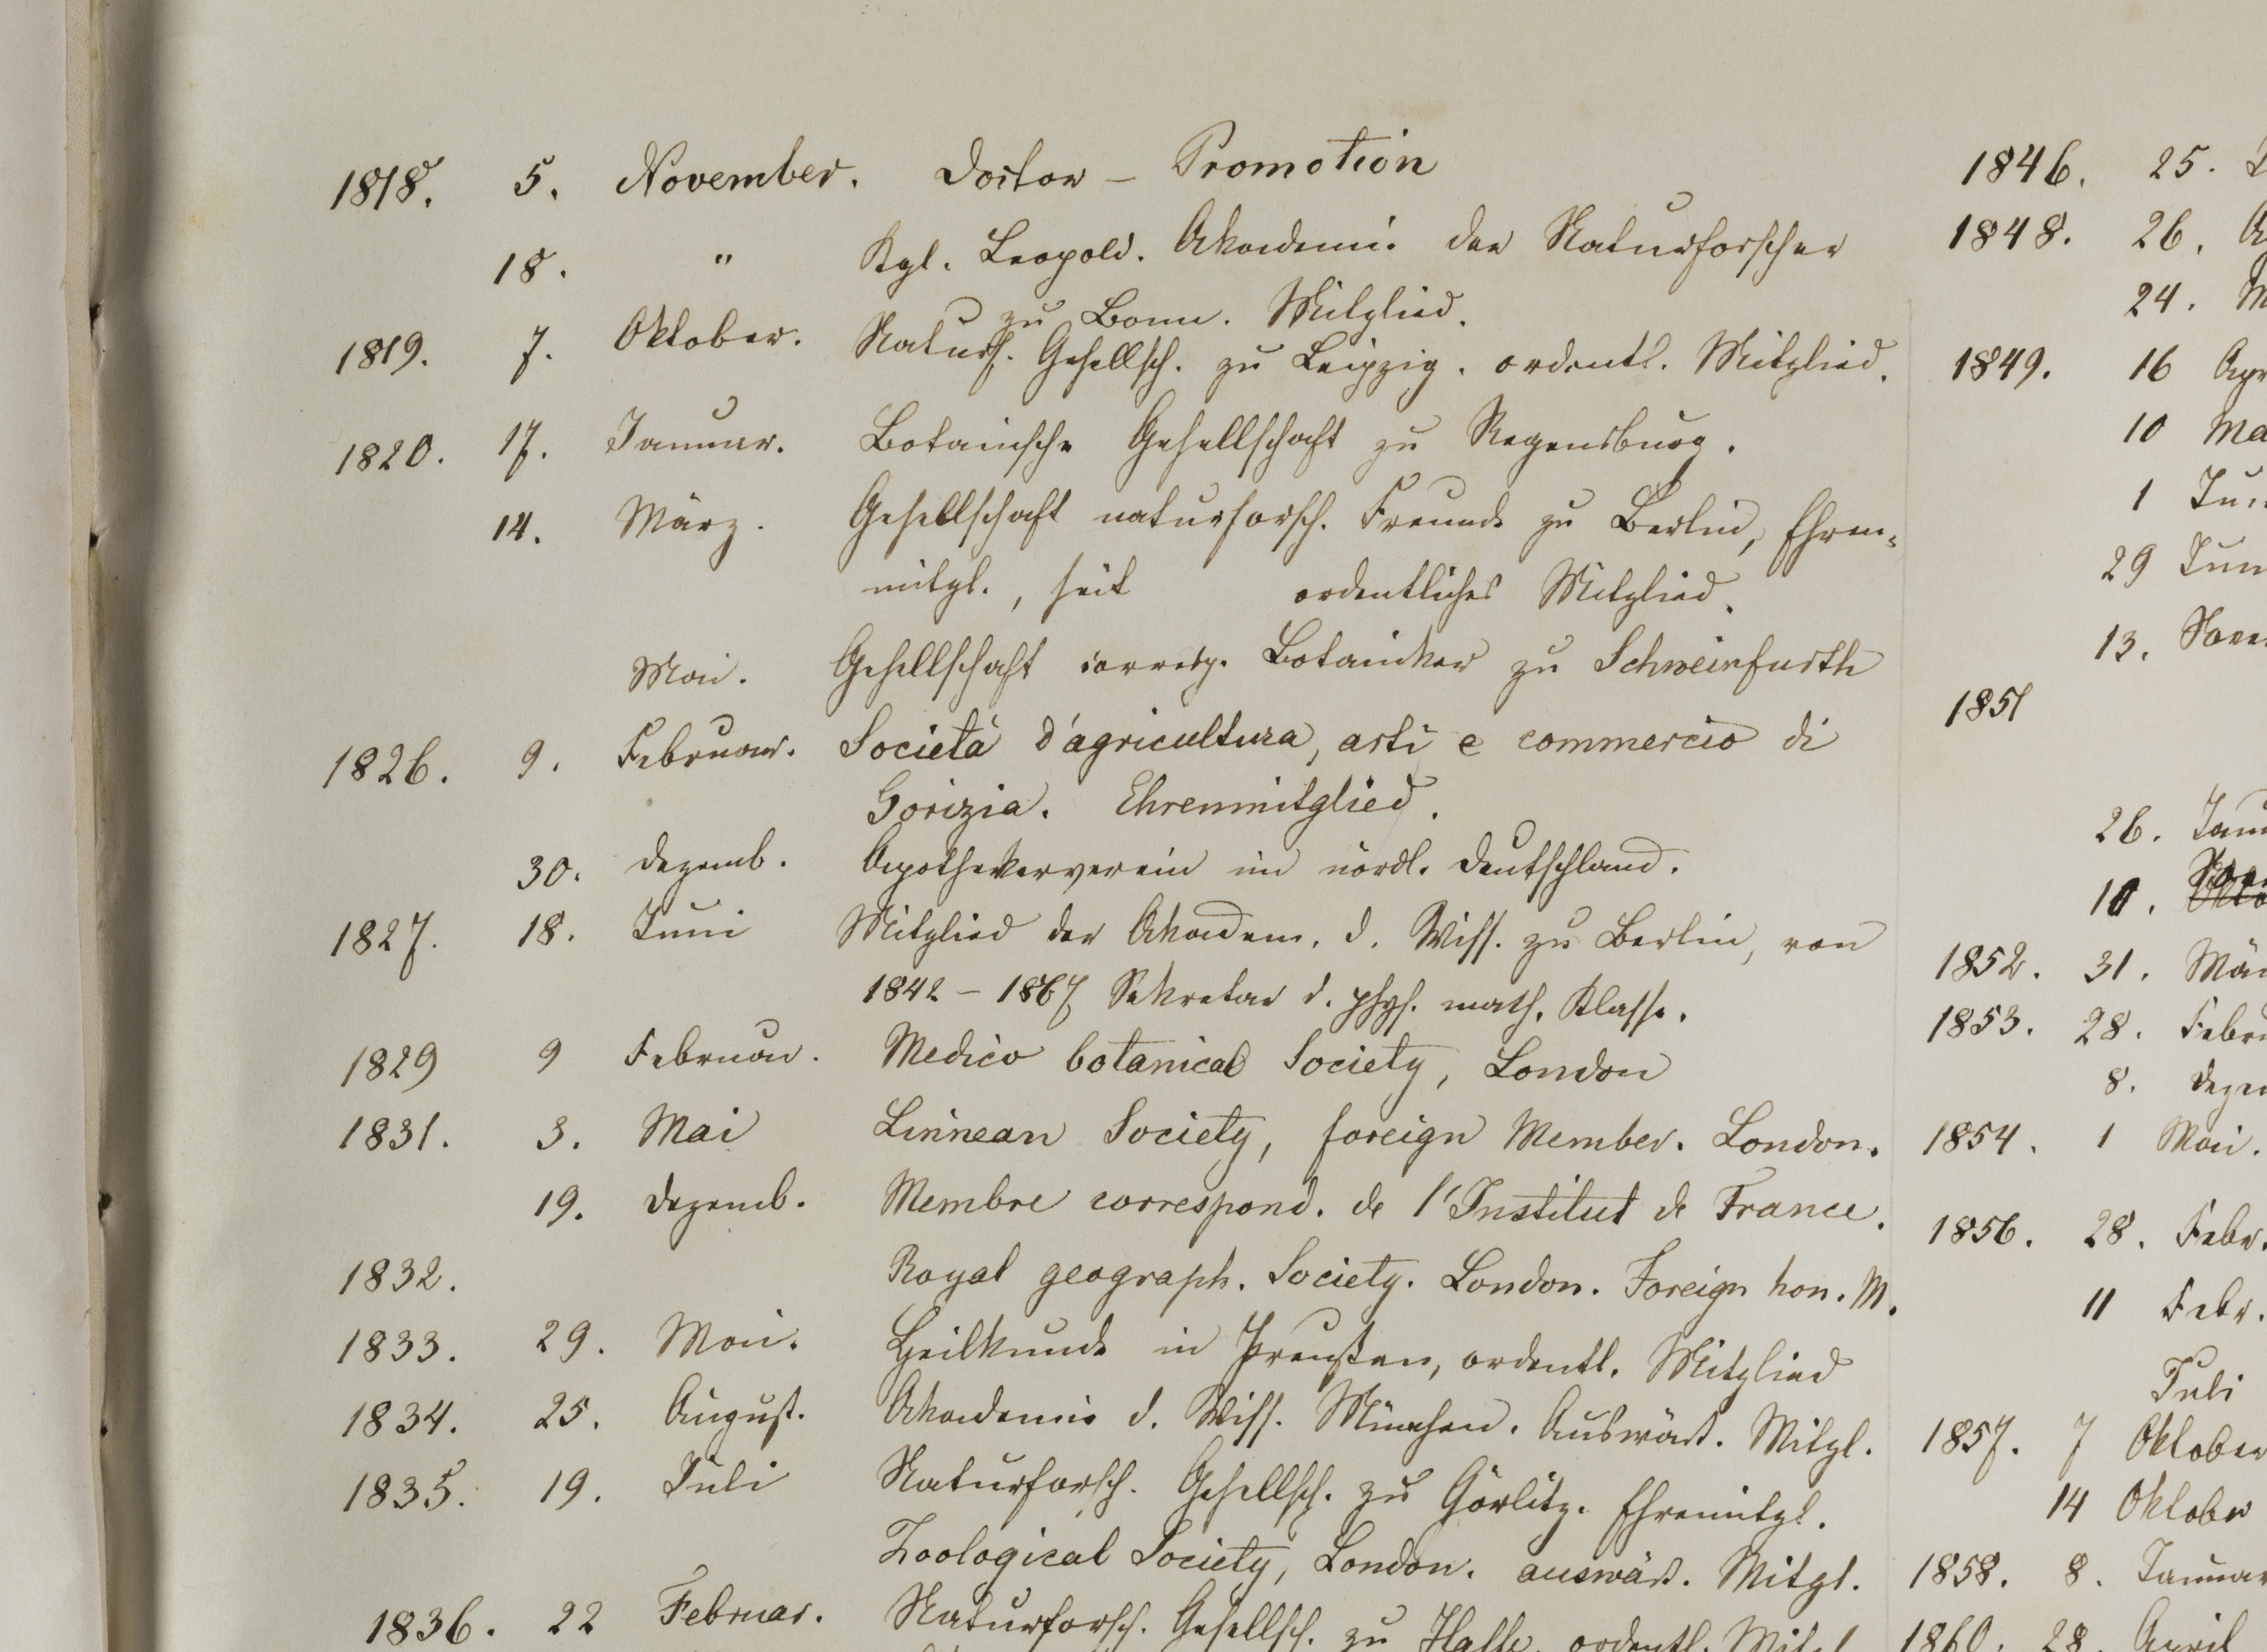 1818. 5. November. Doctor – Promotion
18. " Kgl. Leopold. Akademie der Naturforscher
zu Bonn. Mitglied.
1819. 7. Oktober. Naturf. Gesellsch. zu Leipzig. ordentl. Mitglied.
1820. 17. Januar. Botanische Gesellschaft zu Regensburg.
14. März. Gesellschaft naturforsch. Freunde zu Berlin, Ehren-
mitgl., seit ordentliches Mitglied.
Mai. Gesellschaft corresp. Botaniker zu Schweinfurth
1826. 9. Februar. Società d'agricultura, arti e commercio di
Gorizia. Ehrenmitglied.
30. Dezemb. Apothekerverein im nördl. Deutschland.
1827. 18. Juni Mitglied der Akadem. d. Wiss. zu Berlin, von
1842 – 1867 Sekretar d. phys. math. Klasse.
1829 9 Februar. Medico botanical Society, London
1831. 3. Mai Linnean Society, foreign Member. London.
19. Dezemb. Membre correspond. de l'Institut de France.
1832. Royal geograph. Society. London. Foreign hon. M.
1833. 29. Mai. Heilkunde in Preußen, ordentl. Mitglied
1834. 25. August. Akademie d. Wiss. München. Auswärt. Mitgl.
1835. 19. Juli Naturforsch. Gesellsch. zu Görlitz. Ehrenmitgl.
Zoological Society, London. auswärt. Mitgl.
1836. 22 Februar. Naturforsch. Gesellsch. zu Halle. ordentl. Mitgl
1846. 25.
1848. 26.
24.
1849. 16 Apr
10 Ma
1 Jun
29 Jun
13. Nove
1851
26. Janu
10.
1852. 31. Mär
1853. 28. Febru
8. Dezem
1854. 1 Mai.
1856. 28. Febr.
11 Febr.
Juli
1857. 7 Oktober
14 Oktober
1858. 8. Januar
1860. 28. April